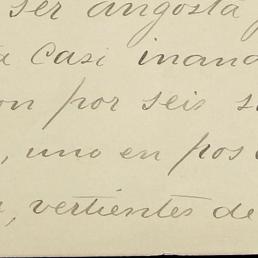 ser angosta
casi inand
on por seis s
, uno en pos
, vertientes de